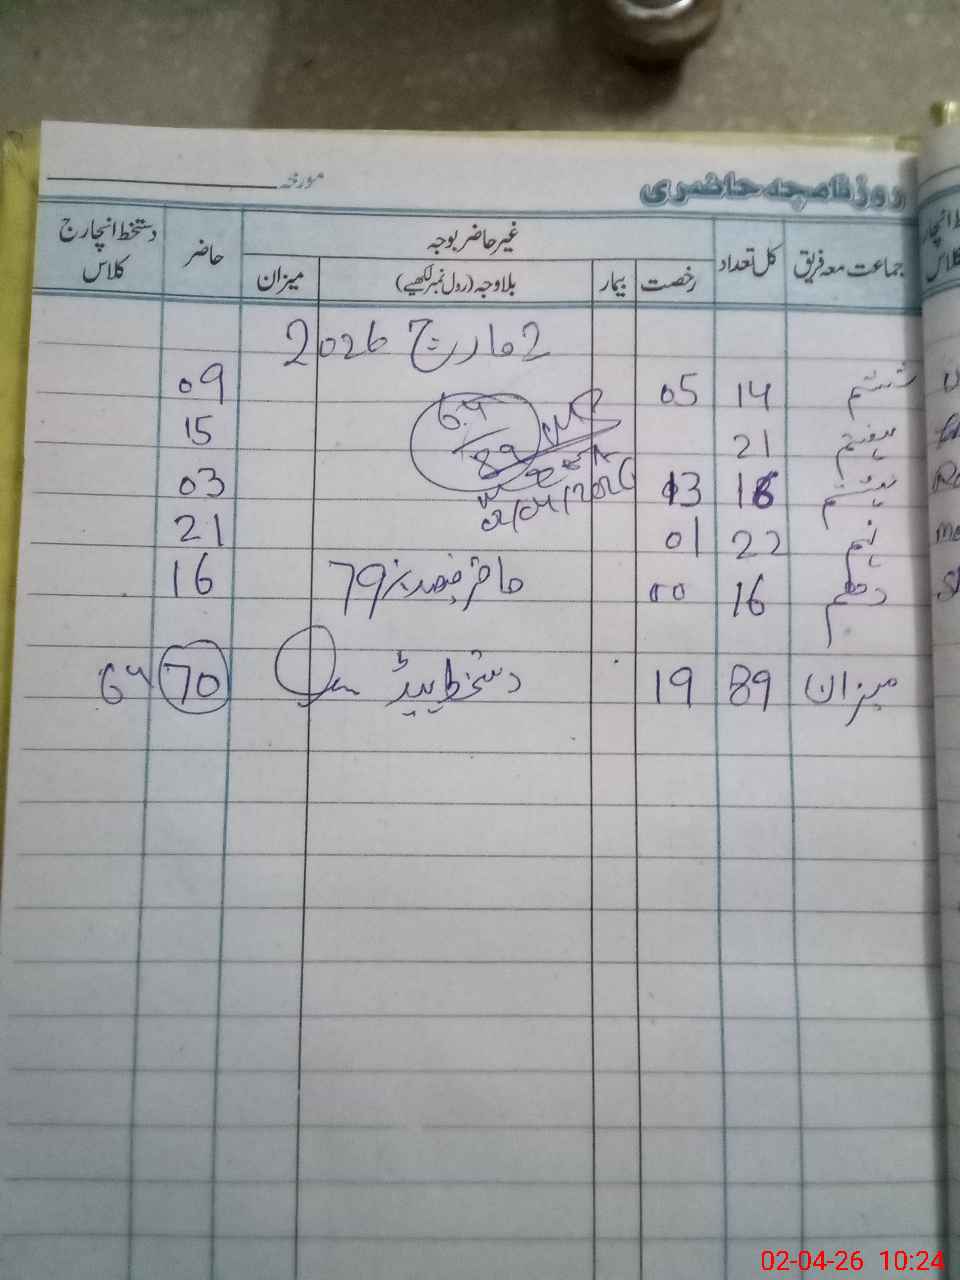 روزنامچہ حاضری مورخہ
جماعت معہ فریق کل تعداد غیر حاضر بوجہ حاضر دستخط انچارج کلاس
رخصت بیمار بلاوجہ (رول نمبر لکھیے) میزان
2 مارچ 2026
ششم 14 05 09
ہفتم 21 15
64/89
ہشتم 16 13 03
02/04/2026
نہم 22 01 21
دہم 16 00 حاضر فیصد % 79 16
میزان 89 19 دستخط ہیڈ 70 64
02-04-26 10:24